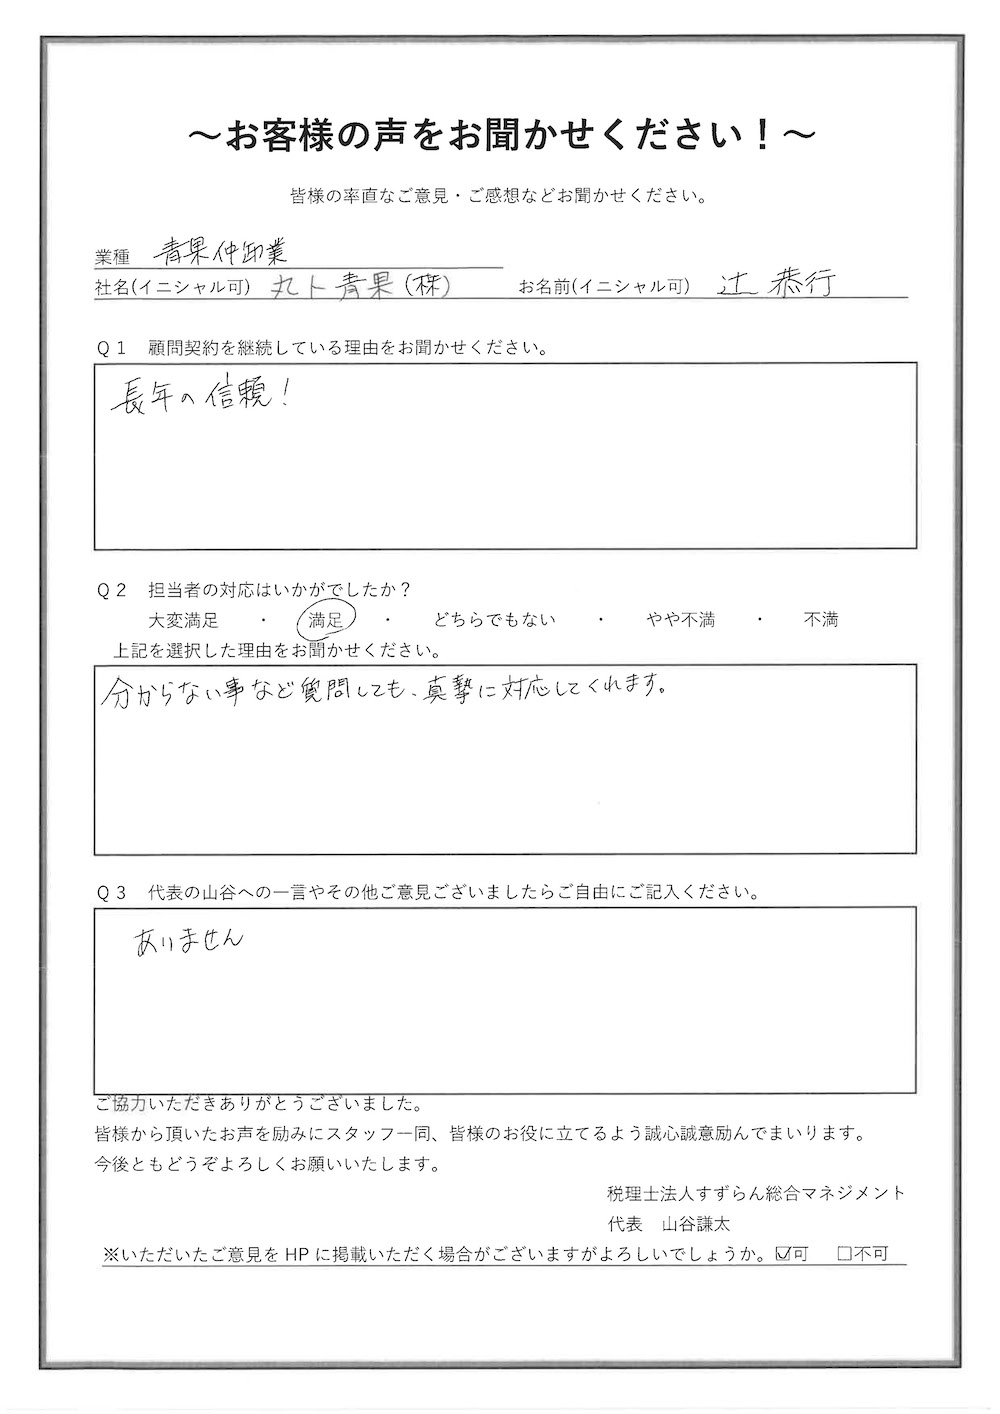 ～お客様の声をお聞かせください！～
皆様の率直なご意見・ご感想などお聞かせください。
業種 青果仲卸業
社名(イニシャル可) 丸ト青果(株) お名前(イニシャル可) 辻 恭行
Q1 顧問契約を継続している理由をお聞かせください。
長年の信頼！
Q2 担当者の対応はいかがでしたか？
大変満足 ・ 満足 ・ どちらでもない ・ やや不満 ・ 不満
上記を選択した理由をお聞かせください。
分からない事など質問しても、真摯に対応してくれます。
Q3 代表の山谷への一言やその他ご意見ございましたらご自由にご記入ください。
ありません
ご協力いただきありがとうございました。
皆様から頂いたお声を励みにスタッフ一同、皆様のお役に立てるよう誠心誠意励んでまいります。
今後ともどうぞよろしくお願いいたします。
税理士法人すずらん総合マネジメント
代表 山谷謙太
※いただいたご意見をHPに掲載いただく場合がございますがよろしいでしょうか。☑可 □不可